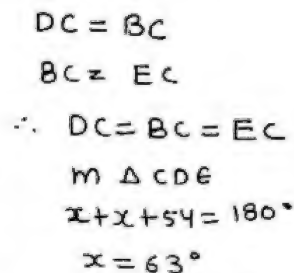 DC = BC
BC = EC
∴ DC = BC = EC
m △ CDE
x+x+54 = 180°
x = 63°